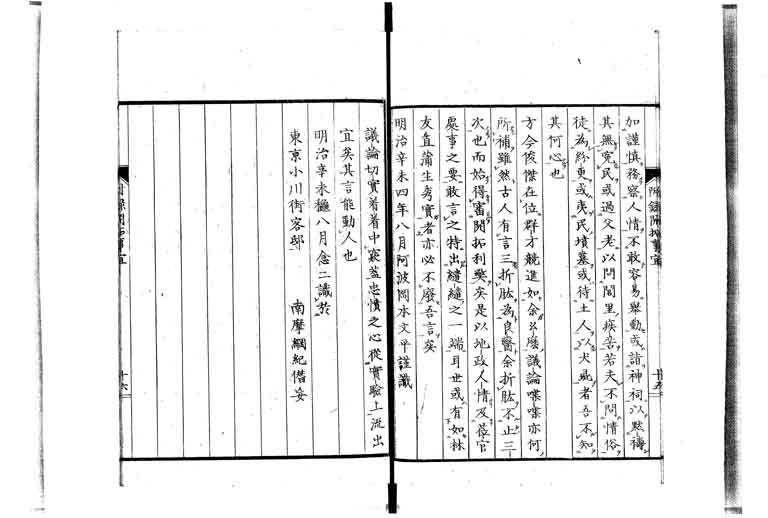 加謹慎務察人情不敢容易舉動或詣神祠以黙禱
其無寃民或過父老以問閭里疾苦若夫不問情俗
徒為紛更或夷民墳墓或待土人以犬彘者吾不知
其何心也
方今俊傑在位群才競進如余么麼議論喋喋亦何
所補雖然古人有言三折肱為良醫余折肱不止三
次也而始得審開拓利獘矣是以地政人情及莅官
處事之要敢言之特出繾繾之一端耳世或有如林
友直蒲生秀實者亦必不廢吾言矣
明治辛未四年八月阿波岡本文平謹識
附錄開拓事宜
十五
議論切實着着中窾盖忠憤之心從實驗上流出
宜矣其言能動人也
明治辛未穐八月念二識於
東京小川街客邸
南摩綱紀僭妄
附錄開拓事宜
十六